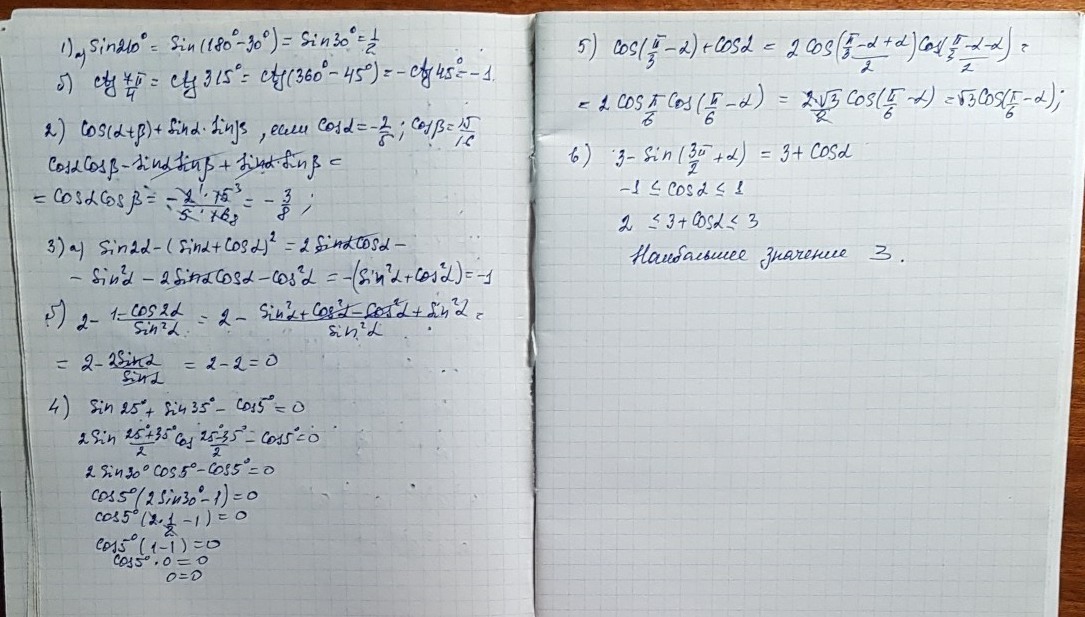 1) а) Sin210° = Sin(180°-30°) = Sin30° = 1/2
б) ctg 7π/4 = ctg 315° = ctg(360° - 45°) = -ctg45° = -1.
2) Cos(α+β) + Sinα · Sinβ, если Cosα = -2/5; Cosβ = 15/16
CosαCosβ - SinαSinβ + Sinα·Sinβ =
= CosαCosβ = - 2¹·15³/5·16₈ = - 3/8;
3) а) Sin2α - (Sinα + Cosα)² = 2SinαCosα -
- Sin²α - 2SinαCosα - Cos²α = -(Sin²α + Cos²α) = -1
б) 2 - 1-Cos2α/Sin²α = 2 - Sin²α + Cos²α - Cos²α + Sin²α/Sin²α =
= 2 - 2Sinα/Sinα = 2 - 2 = 0
4) Sin25° + Sin35° - Cos5° = 0
2Sin 25°+35°/2 Cos 25°-35°/2 - Cos5° = 0
2Sin30° Cos5° - Cos5° = 0
Cos5°(2Sin30° - 1) = 0
Cos5°(2·1/2 - 1) = 0
Cos5°(1-1) = 0
Cos5° · 0 = 0
0 = 0
5) Cos(π/3 - α) + Cosα = 2Cos(π/3 - α + α/2)Cos(π/3 - α - α/2) =
= 2Cos π/6 Cos(π/6 - α) = 2·√3/2 Cos(π/6 - α) = √3Cos(π/6 - α);
6) 3 - Sin(3π/2 + α) = 3 + Cosα
-1 ≤ Cosα ≤ 1
2 ≤ 3 + Cosα ≤ 3
Наибольшее значение 3.